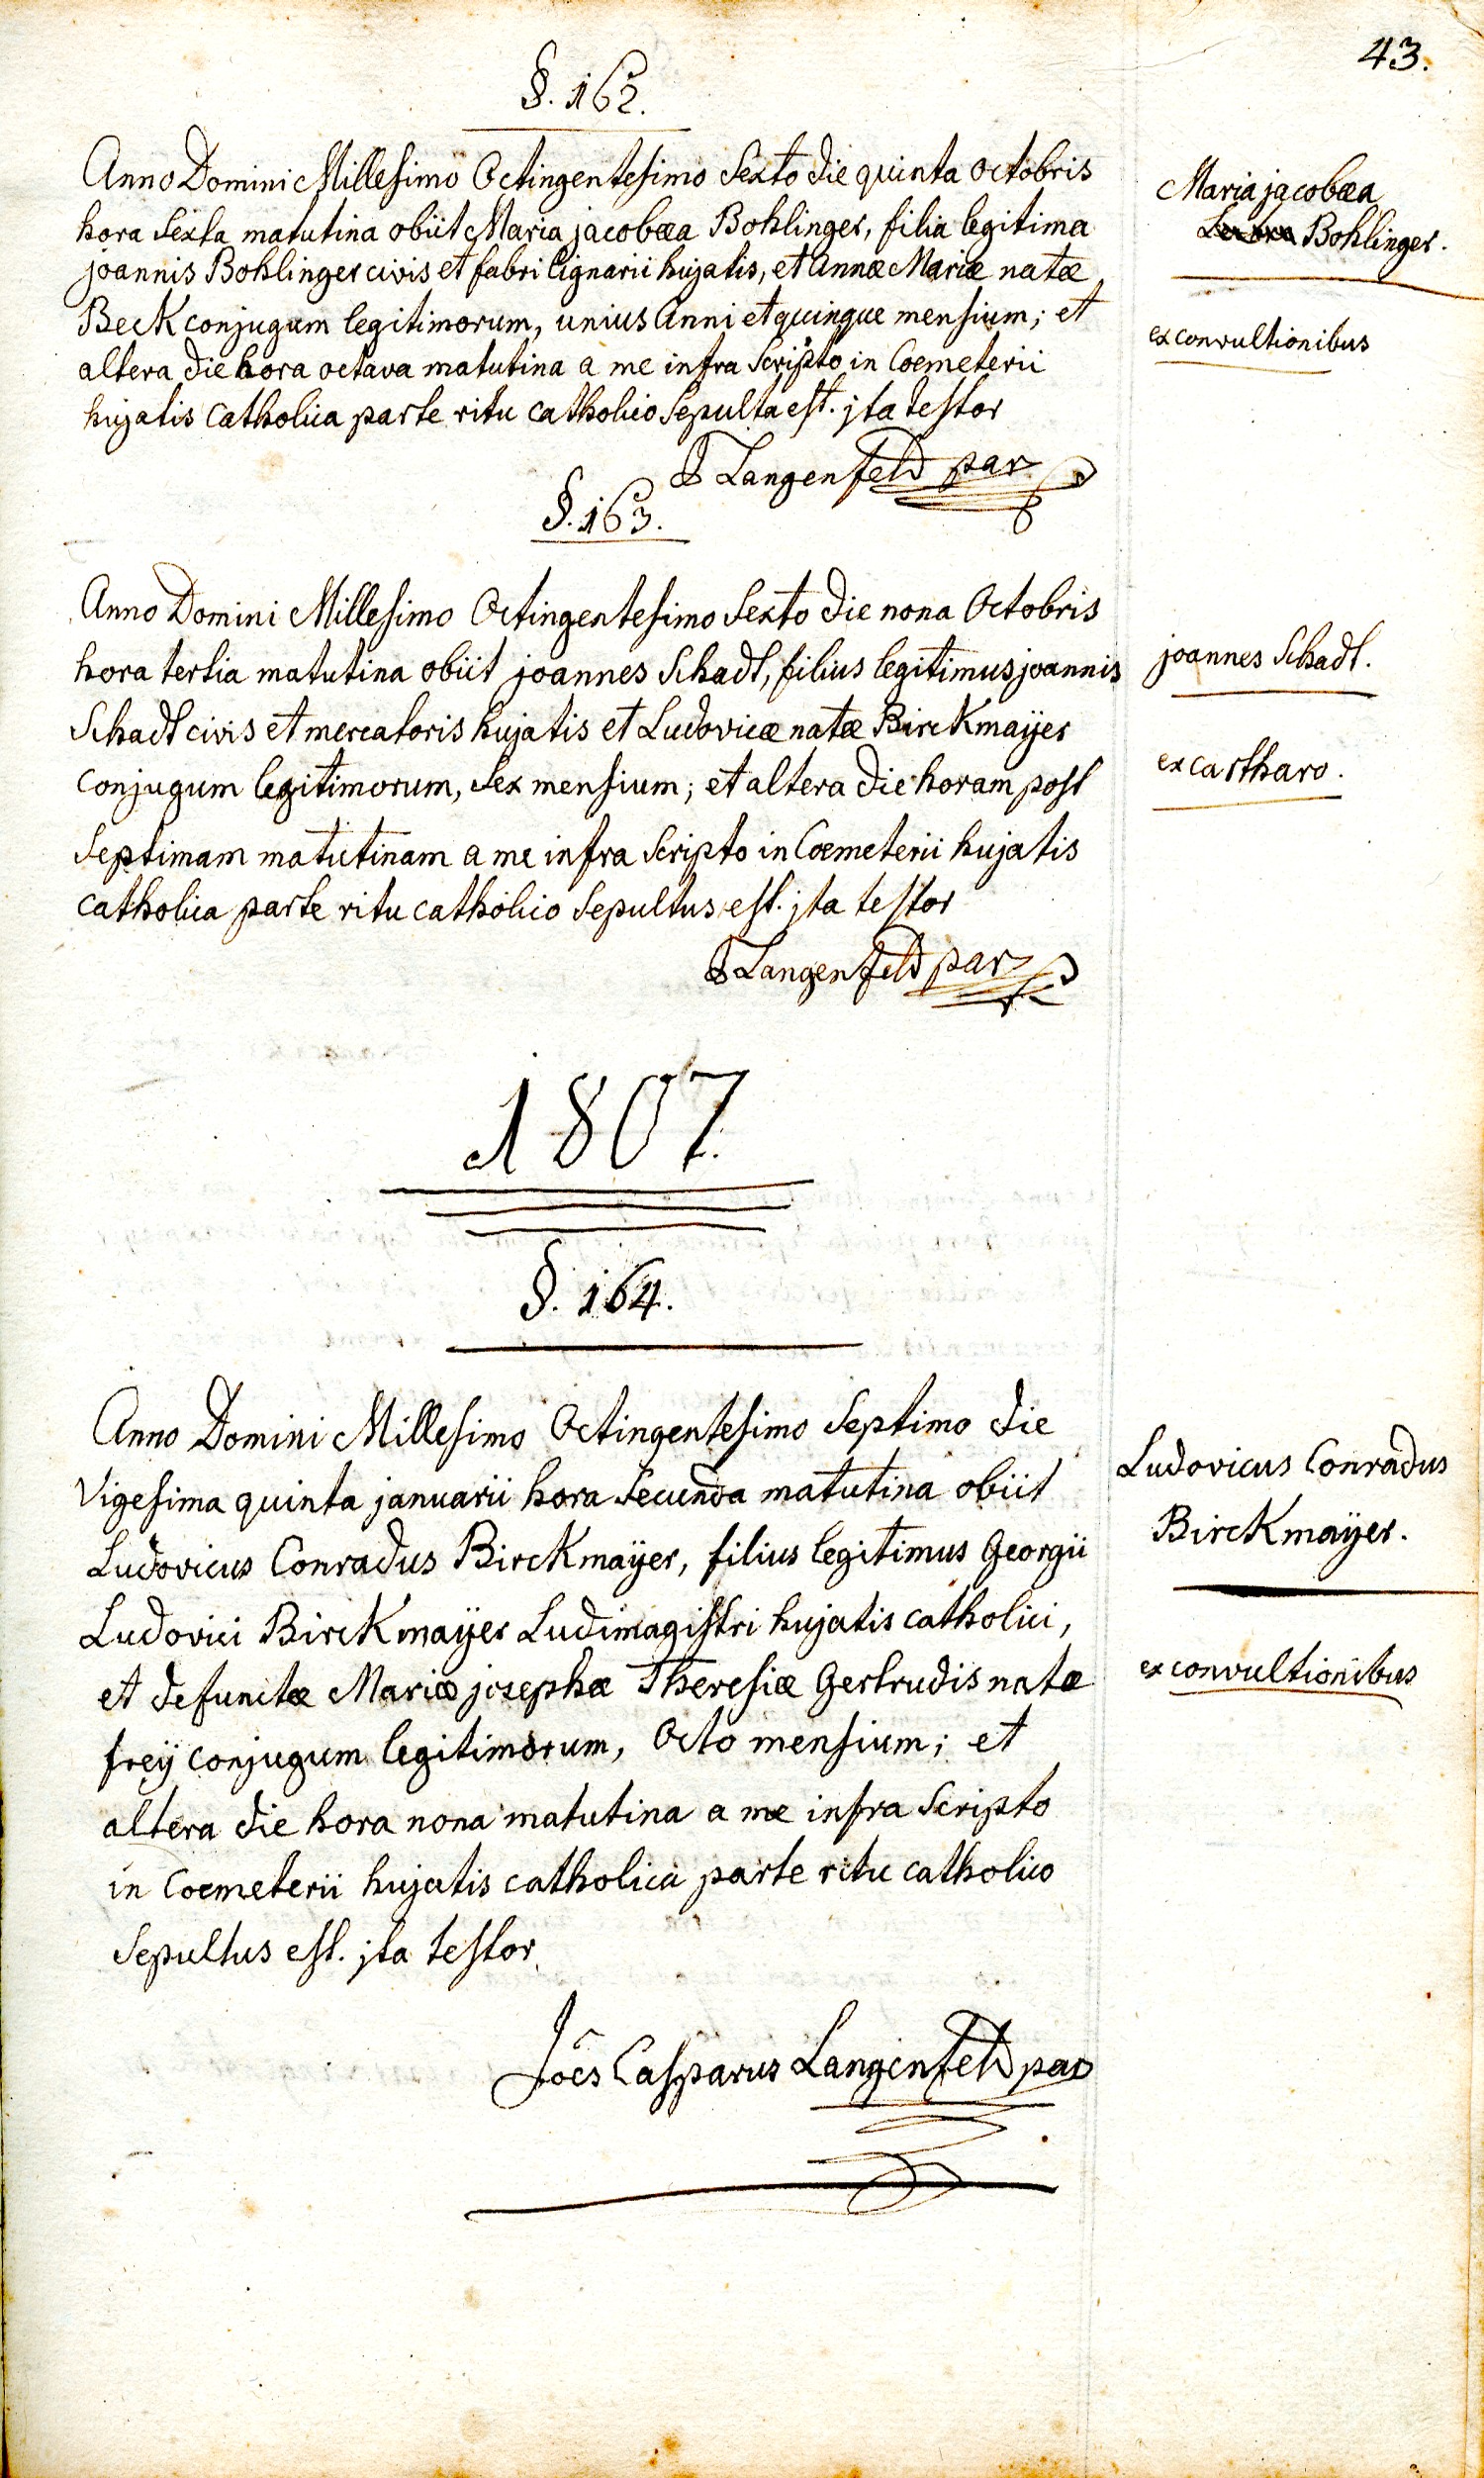 43.
§. 162.
Anno Domini Millesimo Octingentesimo Sexto die quinta octobris
hora Sexta matutina obiit Maria jacobæa Bohlinger, filia legitima
joannis Bohlinger civis et fabri lignarii hujatis, et Annæ Mariæ natæ
Beck conjugum legitimorum, unius Anni et quinque mensium; et
altera die hora octava matutina a me infra Scripto in Coemeterii
hujatis Catholica parte ritu catholico Sepulta est. jta testor
Langenfeld par
Maria jacobæa
Bohlinger.
ex convultionibus
§. 163.
Anno Domini Millesimo Octingentesimo Sexto die nona Octobris
hora tertia matutina obiit joannes Schadt, filius legitimus joannis
Schadt civis et mercatoris hujatis et Ludovicæ natæ Birckmaÿer
conjugum legitimorum, Sex mensium; et altera die horam post
Septimam matutinam a me infra Scripto in Coemeterii hujatis
catholica parte ritu catholico Sepultus est. jta testor
Langenfeld par
joannes Schadt.
ex cartharo.
1807.
§. 164.
Anno Domini Millesimo Octingentesimo Septimo die
Vigesima quinta januarii hora Secunda matutina obiit
Ludovicus Conradus Birckmaÿer, filius legitimus Georgii
Ludovici Birckmaÿer Ludimagistri hujatis catholici,
et defunctæ Mariæ josephæ Theresiæ Gertrudis natæ
freÿ conjugum legitimorum, Octo mensium; et
altera die hora nona matutina a me infra Scripto
in Coemeterii hujatis catholica parte ritu catholico
Sepultus est. jta testor
Joês Casparus Langenfeld par
Ludovicus Conradus
Birckmaÿer.
ex convultionibus